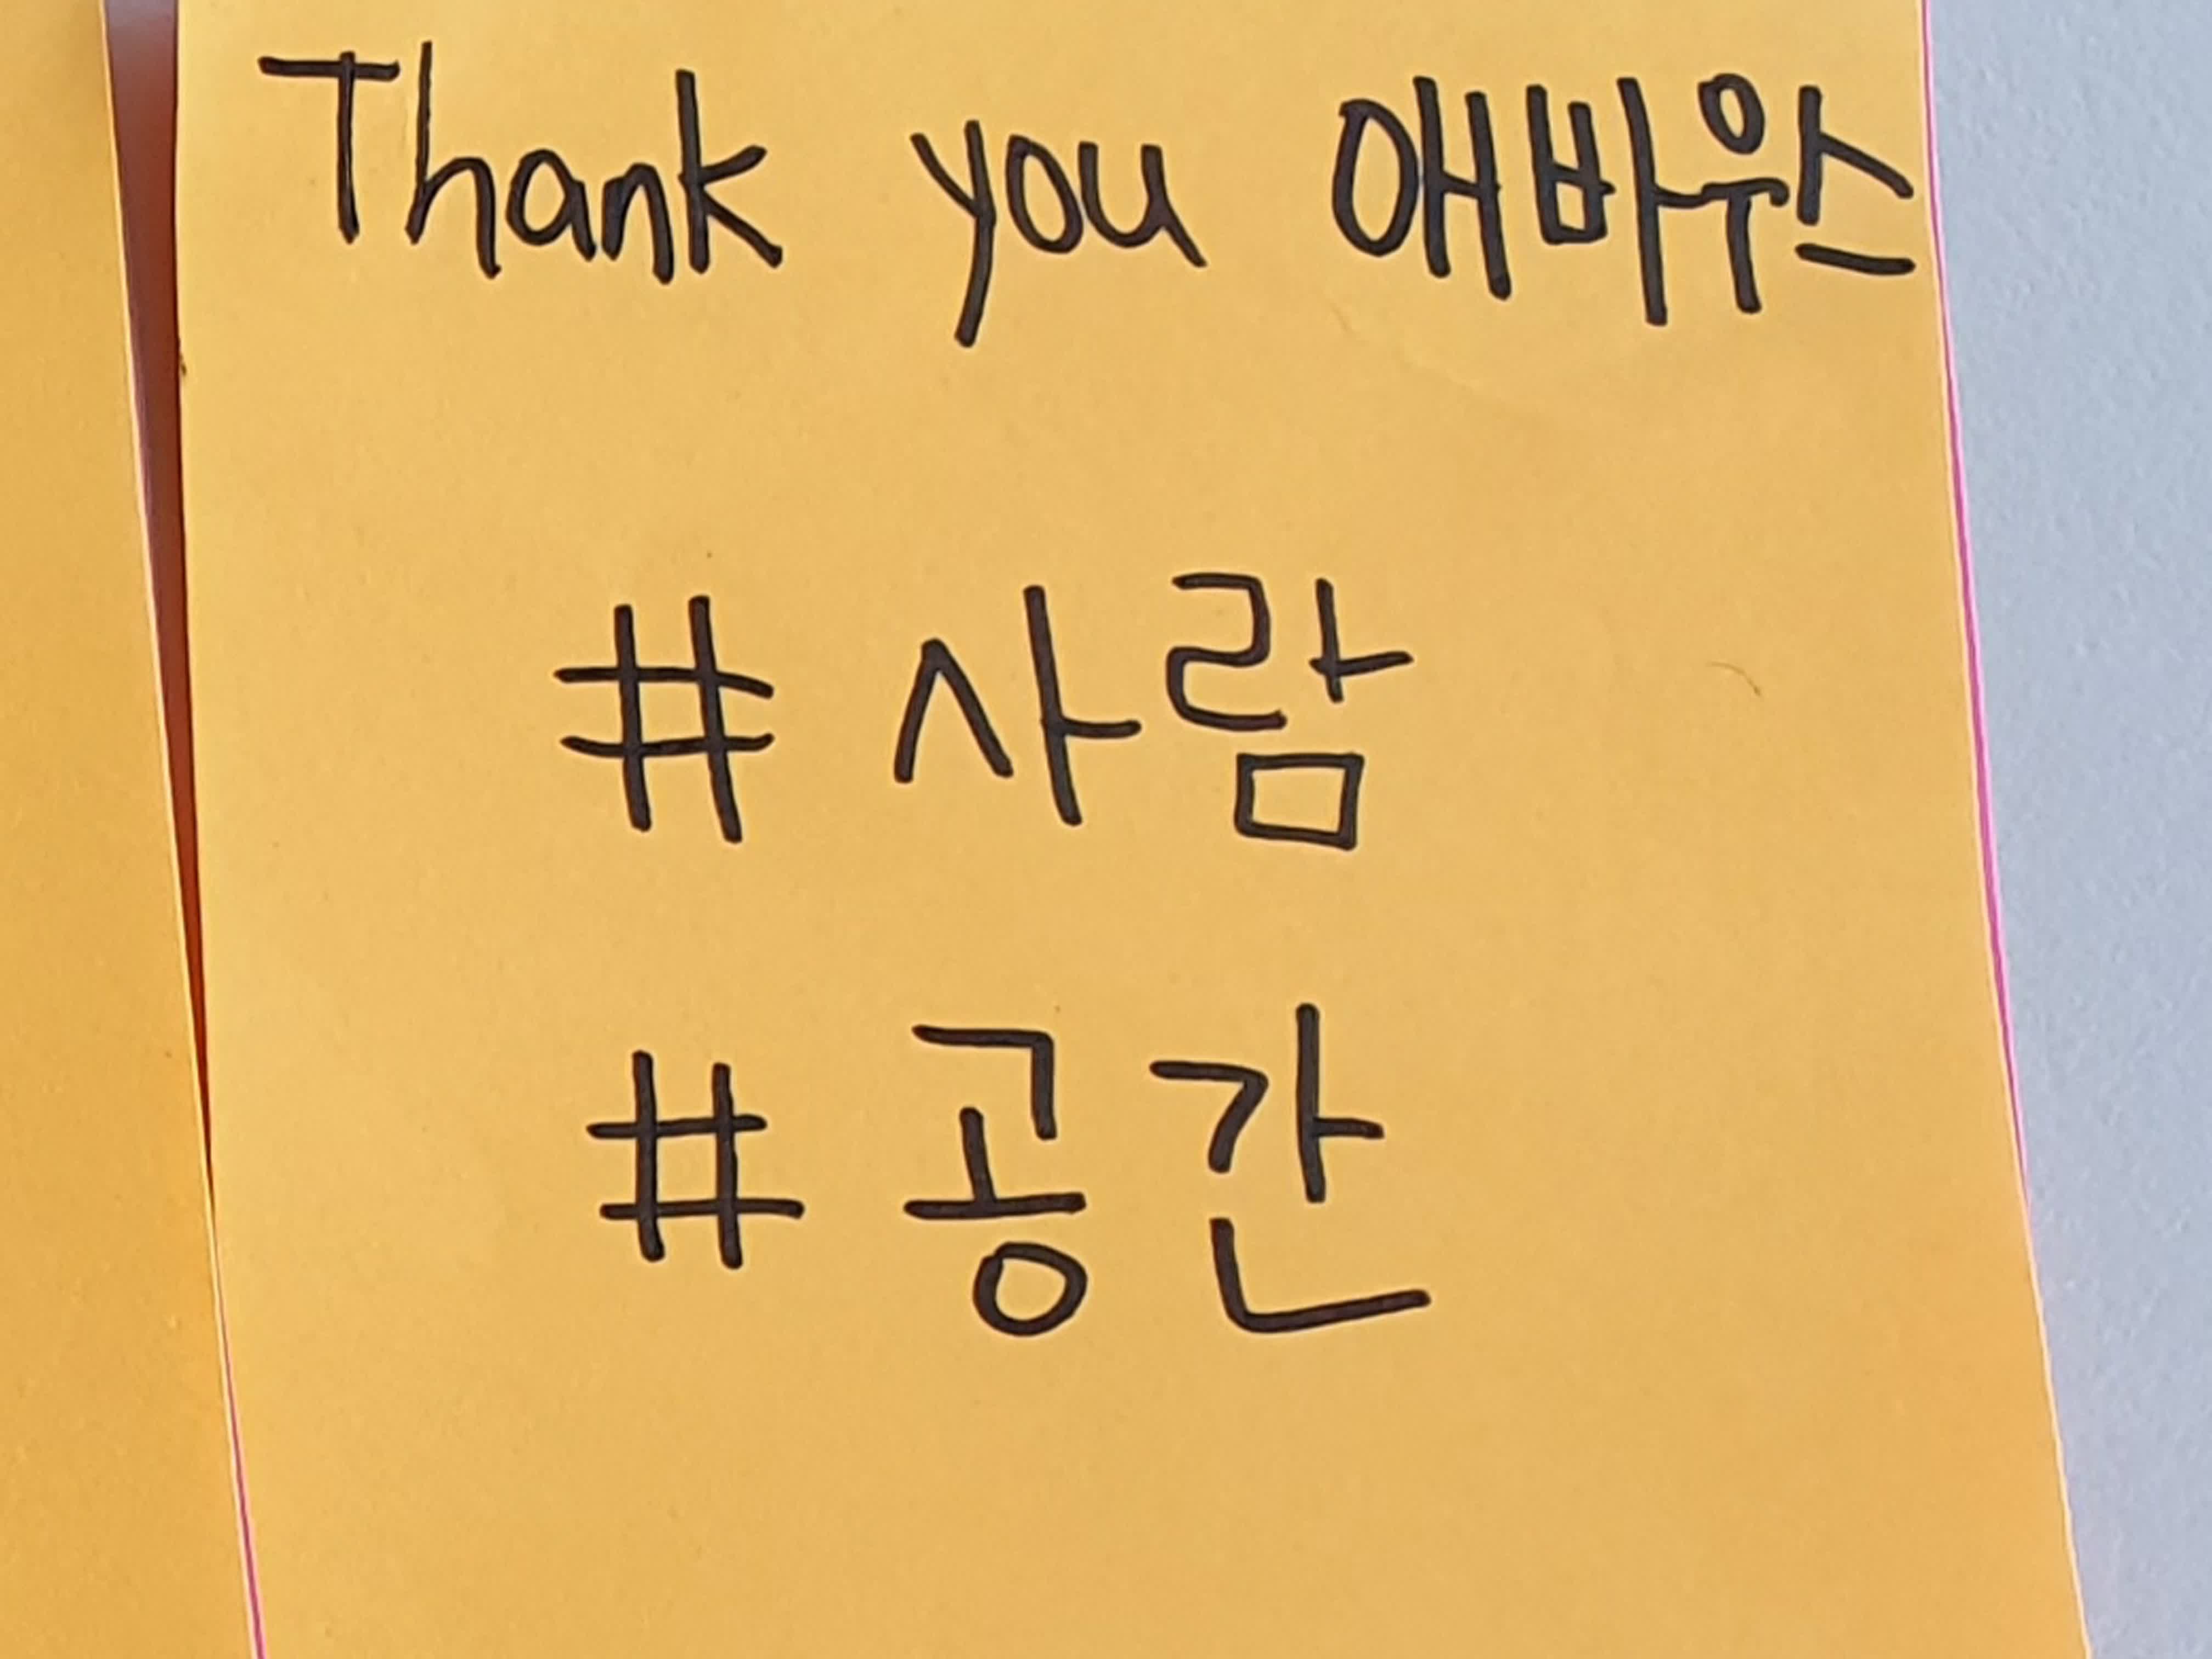 Thank you 애바우스
#사람
#공간